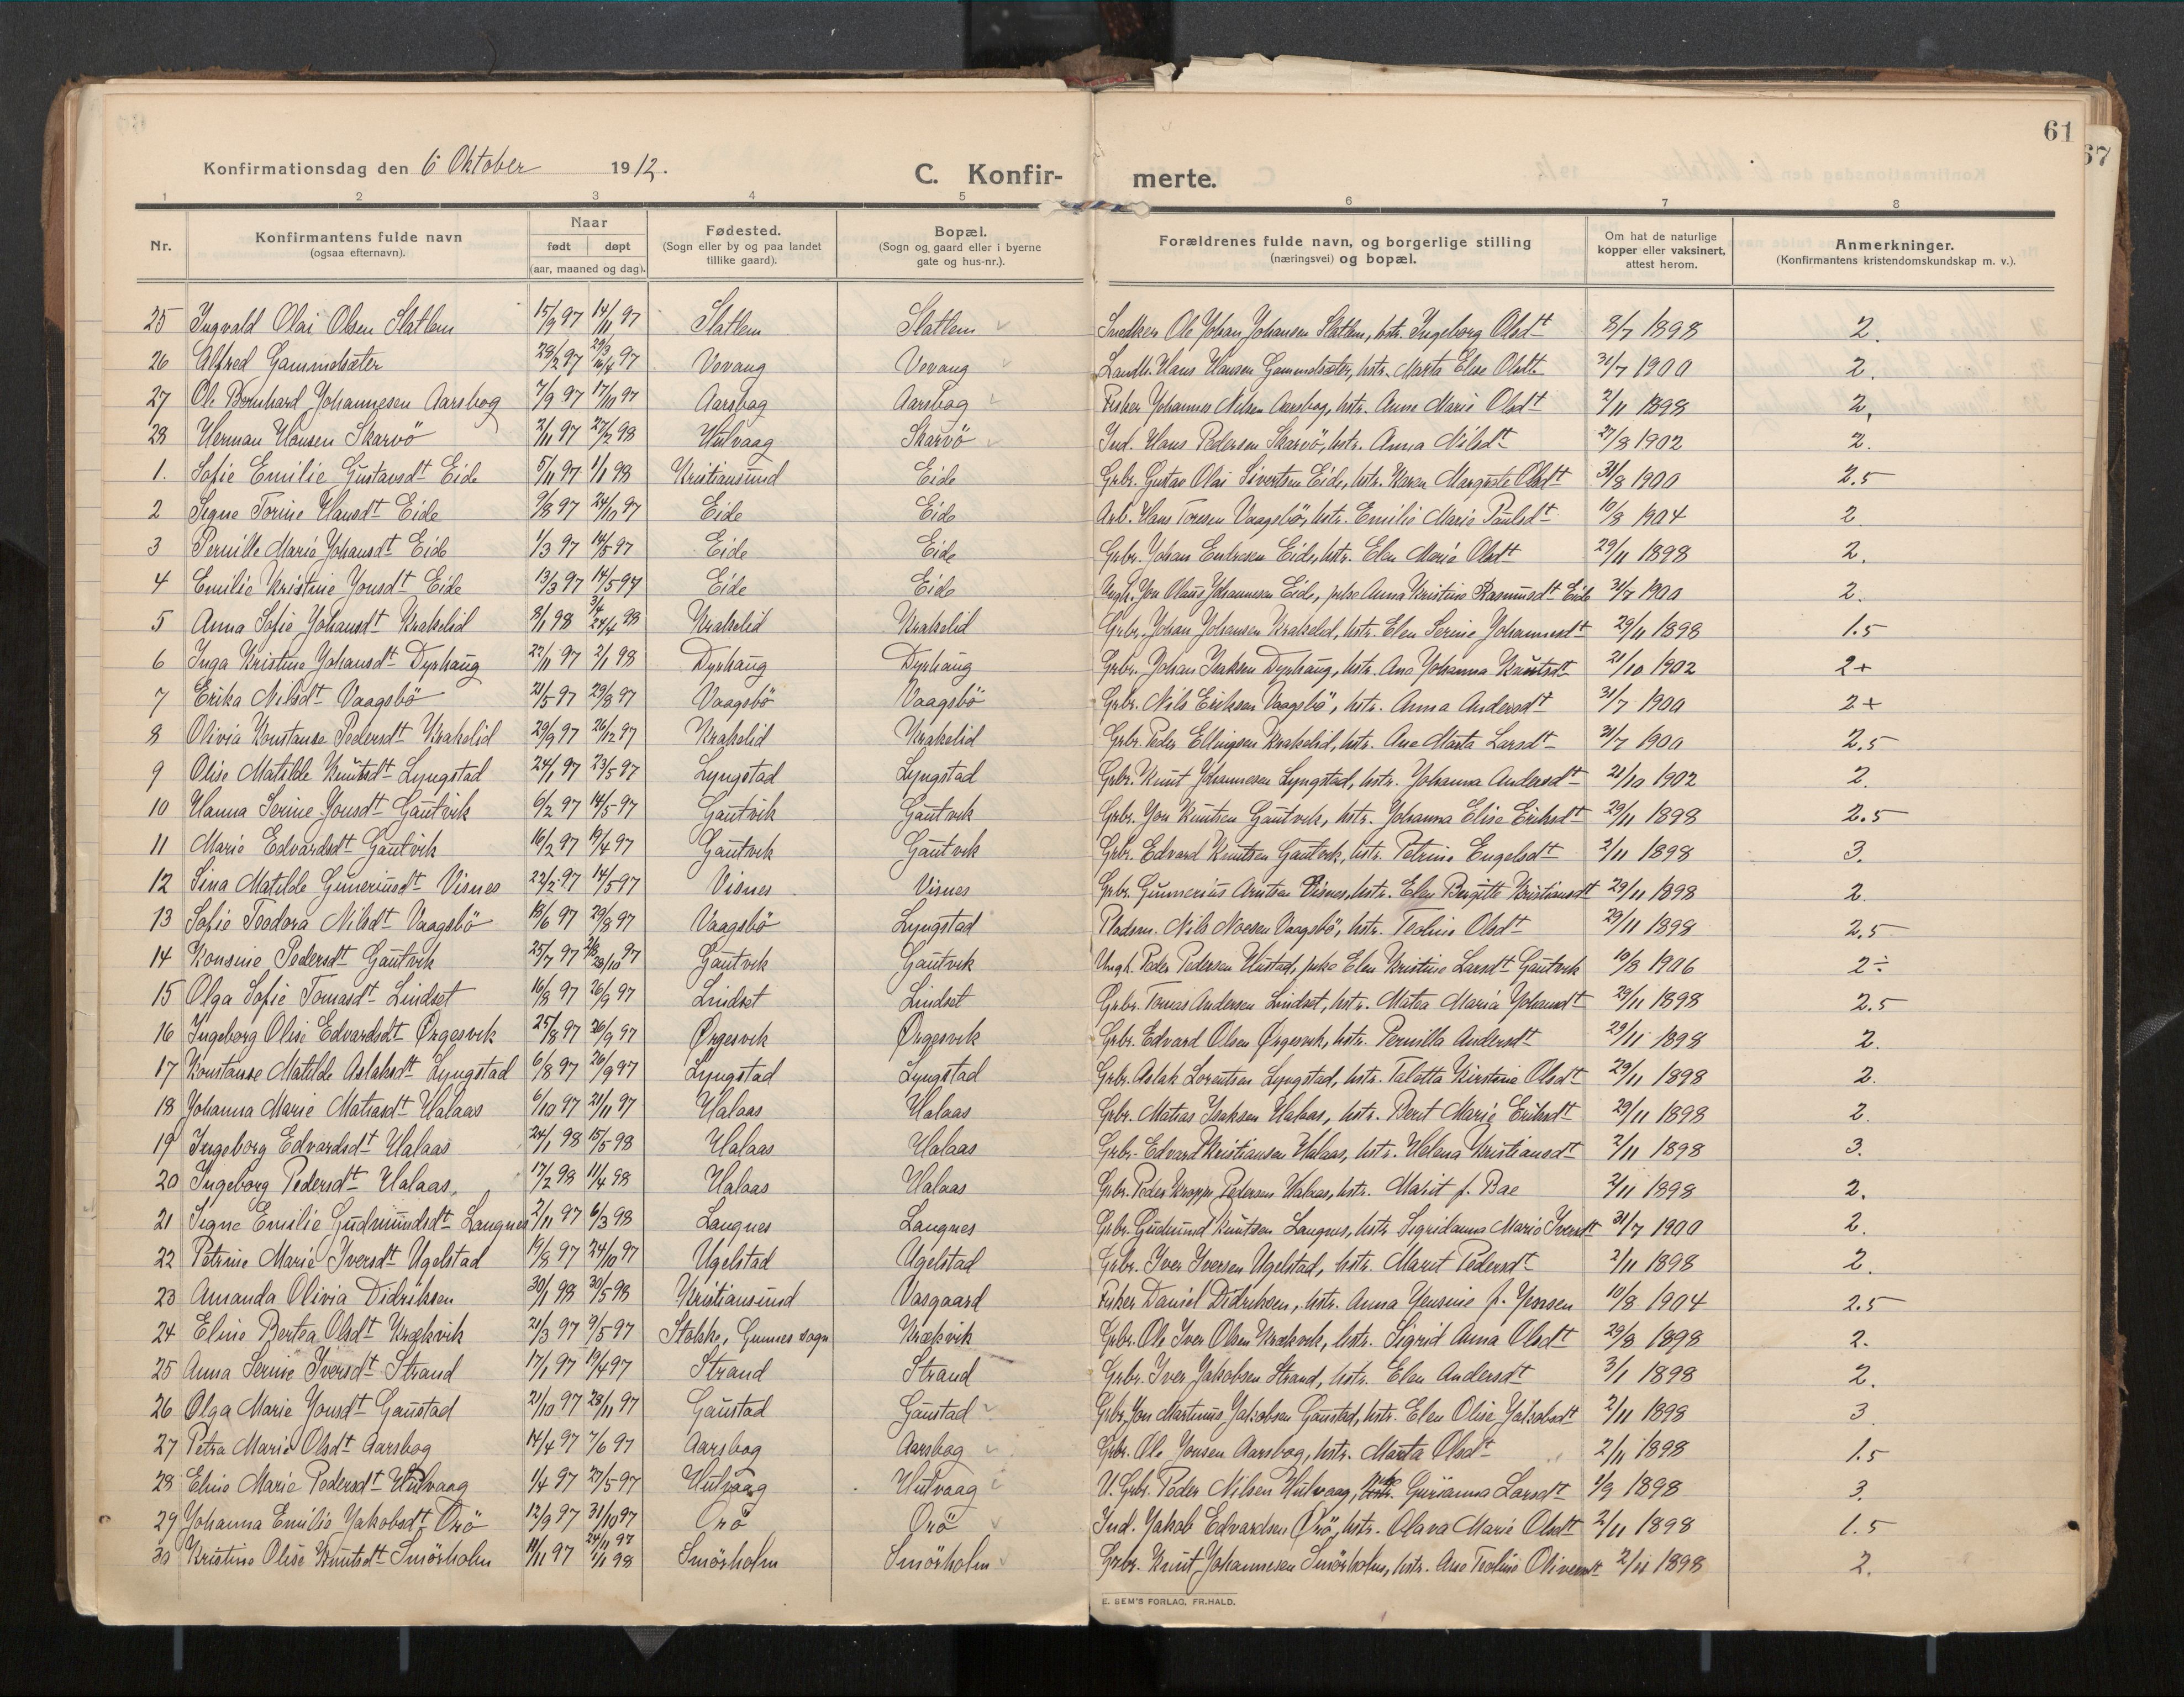 61
67
Konfirmationsdag den 6 Oktober 1912.
C. Konfir- merte.
1 2 3 4 5 6 7 8
Nr. Konfirmantens fulde navn (ogsaa efternavn). Naar født døpt (aar, maaned og dag). Fødested. (Sogn eller by og paa landet tillike gaard). Bopæl. (Sogn og gaard eller i byerne gate og hus-nr.). Forældrenes fulde navn, og borgerlige stilling (næringsvei) og bopæl. Om hat de naturlige kopper eller vaksinert, attest herom. Anmerkninger. (Konfirmantens kristendomskundskap m. v.).
25 Ingvald Olai Olsen Slatlem 15/9 97 14/11 97 Slatlem Slatlem Snedker Ole Johan Johansen Slatlem, hstr. Ingeborg Olsdt 8/7 1898 2.
26 Alfred Gammelsæter 28/2 97 Vevang Vevang Landh. Hans Hansen Gammelsæter, hstr. Marta Elise Olsdt 31/7 1900 2.
27 Ole Bernhard Johannesen Aarsbog 7/9 97 17/10 97 Aarsbog Aarsbog Fisker Johannes Nilsen Aarsbog, hstr. Anne Marie Olsdt 2/11 1898 2.
28 Herman Hansen Skarvö 2/11 97 27/2 98 Hulvaag Skarvö Ind. Hans Pedersen Skarvö, hstr. Anna Nilsdt 27/8 1902 2.
1. Sofie Emilie Gustavsdt Eide 5/11 97 1/1 98 Kristiansund Eide Grbr. Gustav Olai Sivertsen Eide, hstr. Karen Margrete Olsdt 31/8 1900 2.5
2 Signe Torine Hansdt Eide 9/8 97 24/10 97 Eide Eide Arb. Hans Toresen Vaagsbö, hstr. Emilie Marie Paulsdt 10/8 1904 2
3 Pernille Marie Johansdt Eide 1/3 97 14/5 97 Eide Eide Grbr. Johan Endresen Eide, hstr. Elen Marie Olsdt 29/11 1898 2.
4 Emilie Kristine Jonsdt Eide 13/3 97 14/5 97 Eide Eide Ungk. Jon Olaus Johannesen Eide, pike Anna Kristine Rasmusdt Eide 31/7 1900 2.
5 Anna Sofie Johansdt Krakelid 8/1 98 3/4 24/4 98 Krakelid Krakelid Grbr. Johan Johansen Krakelid, hstr. Elen Serine Johannesdt 29/11 1898 1.5
6 Inga Kristine Johansdt Dyrhaug 22/11 97 2/1 98 Dyrhaug Dyrhaug Grbr. Johan Isaksen Dyrhaug, hstr. Ane Johanna Knutsdt 21/10 1902 2+
7 Erika Nilsdt Vaagsbö 21/5 97 29/8 97 Vaagsbö Vaagsbö Grbr. Nils Eriksen Vaagsbö, hstr. Anna Andersdt 31/7 1900 2+
8 Olivia Konstanse Pedersdt Krakelid 29/9 97 26/12 97 Krakelid Krakelid Grbr. Peder Ellingsen Krakelid, hstr. Ane Marta Larsdt 31/7 1900 2.5
9 Olise Matilde Knutsdt Lyngstad 24/1 97 23/5 97 Lyngstad Lyngstad Grbr. Knut Johannesen Lyngstad, hstr. Johanna Andersdt 21/10 1902 2.
10 Hanna Serine Jonsdt Gautvik 6/2 97 14/5 97 Gautvik Gautvik Grbr. Jon Knutsen Gautvik, hstr. Johanna Elise Eriksdt 29/11 1898 2.5
11 Marie Edvardsdt Gautvik 16/2 97 19/4 97 Gautvik Gautvik Grbr. Edvard Knutsen Gautvik, hstr. Petrine Engelsdt 2/11 1898 3.
12 Sina Matilde Gunneriusdt Visnes 22/2 97 14/5 97 Visnes Visnes Grbr. Gunnerius Arntsen Visnes, hstr. Elen Bergitte Kristiansdt 29/11 1898 2.
13 Sofie Teodora Nilsdt Vaagsbö 13/6 97 29/8 97 Vaagsbö Lyngstad Pladsm. Nils Noesen Vaagsbö, hstr. Teoline Olsdt 29/11 1898 2.5
14 Konsine Pedersdt Gautvik 25/7 97 Gautvik Gautvik Ungk. Peder Pedersen Hustad, pike Elen Kristine Larsdt Gautvik 10/8 1906 2÷
15 Olga Sofie Tomasdt Lindset 16/8 97 26/9 97 Lindset Lindset Grbr. Tomas Andersen Lindset, hstr. Matea Maria Johansdt 29/11 1898 2.5
16 Ingeborg Olise Edvardsdt Ørgesvik 25/8 97 26/9 97 Ørgesvik Ørgesvik Grbr. Edvard Olsen Ørgesvik, hstr. Pernilla Andersdt 29/11 1898 2.
17 Konstanse Matilde Aslaksdt Lyngstad 6/8 97 26/9 97 Lyngstad Lyngstad Grbr. Aslak Lorentsen Lyngstad, hstr. Talette Kirstine Olsdt 29/11 1898 2.
18 Johanna Marie Matiasdt Halaas 6/10 97 21/11 97 Halaas Halaas Grbr. Matias Isaksen Halaas, hstr. Berit Marie Eriksdt 29/11 1898 2.
19 Ingeborg Edvardsdt Halaas 24/1 98 15/5 98 Halaas Halaas Grbr. Edvard Kristiansen Halaas, hstr. Helena Kristiansdt 2/11 1898 3.
20 Ingeborg Pedersdt Halaas 17/2 98 11/4 98 Halaas Halaas Grbr. Peder Pedersen Halaas, hstr. Marit f. Bae 2/11 1898 2.
21 Signe Emilie Gudmundsdt Langnes 2/11 97 6/3 98 Langnes Langnes Grbr. Gudmund Knutsen Langnes, hstr. Sigridanna Marie Iversdt 31/7 1900 2.
22 Petrine Marie Iversdt Ugelstad 19/8 97 24/10 97 Ugelstad Ugelstad Grbr. Iver Iversen Ugelstad, hstr. Marit Pedersdt 2/11 1898 2.
23 Amanda Olivia Didriksen 30/1 98 30/5 98 Kristiansund Vasgaard Fisker Daniel Didriksen, hstr. Anna Jensine f. Jenssen 10/8 1904 2.5
24 Eline Bertea Olsdt Krækvik 21/3 97 9/5 97 Stokke, sogn Krækvik Grbr. Ole Iver Olsen Krækvik, hstr. Sigrid Anna Olsdt 29/8 1898 2.
25 Anna Serine Iversdt Strand 17/1 97 19/4 97 Strand Strand Grbr. Iver Jakobsen Strand, hstr. Elen Andersdt 3/1 1898 2.
26 Olga Marie Jonsdt Gaustad 21/10 97 28/11 97 Gaustad Gaustad Grbr. Jon Martinus Jakobsen Gaustad, hstr. Elen Olise Jakobsdt 2/11 1898 3
27 Petra Marie Olsdt Aarsbog 14/4 97 7/6 97 Aarsbog Aarsbog Grbr. Ole Jonsen Aarsbog, hstr. Marta Olsdt 2/11 1898 1.5
28 Eline Marie Pedersdt Hulvaag 1/4 97 27/5 97 Hulvaag Hulvaag U. Grbr. Peder Nilsen Hulvaag, Gurianna Larsdt 1/9 1898 3.
29 Johanna Emilie Jakobsdt Orö 12/9 97 31/10 97 Orö Orö Ind. Jakob Edvardsen Orö, hstr. Olava Marie Olsdt 2/11 1898 1.5
30 Kristine Olise Knutsdt Smörholm 11/11 97 24/11 97 1/1 98 Smörholm Smörholm Grbr. Knut Johannesen Smörholm, hstr. Ane Teoline Oliversdt 2/11 1898 2.
E. SEM'S FORLAG, FR.HALD.